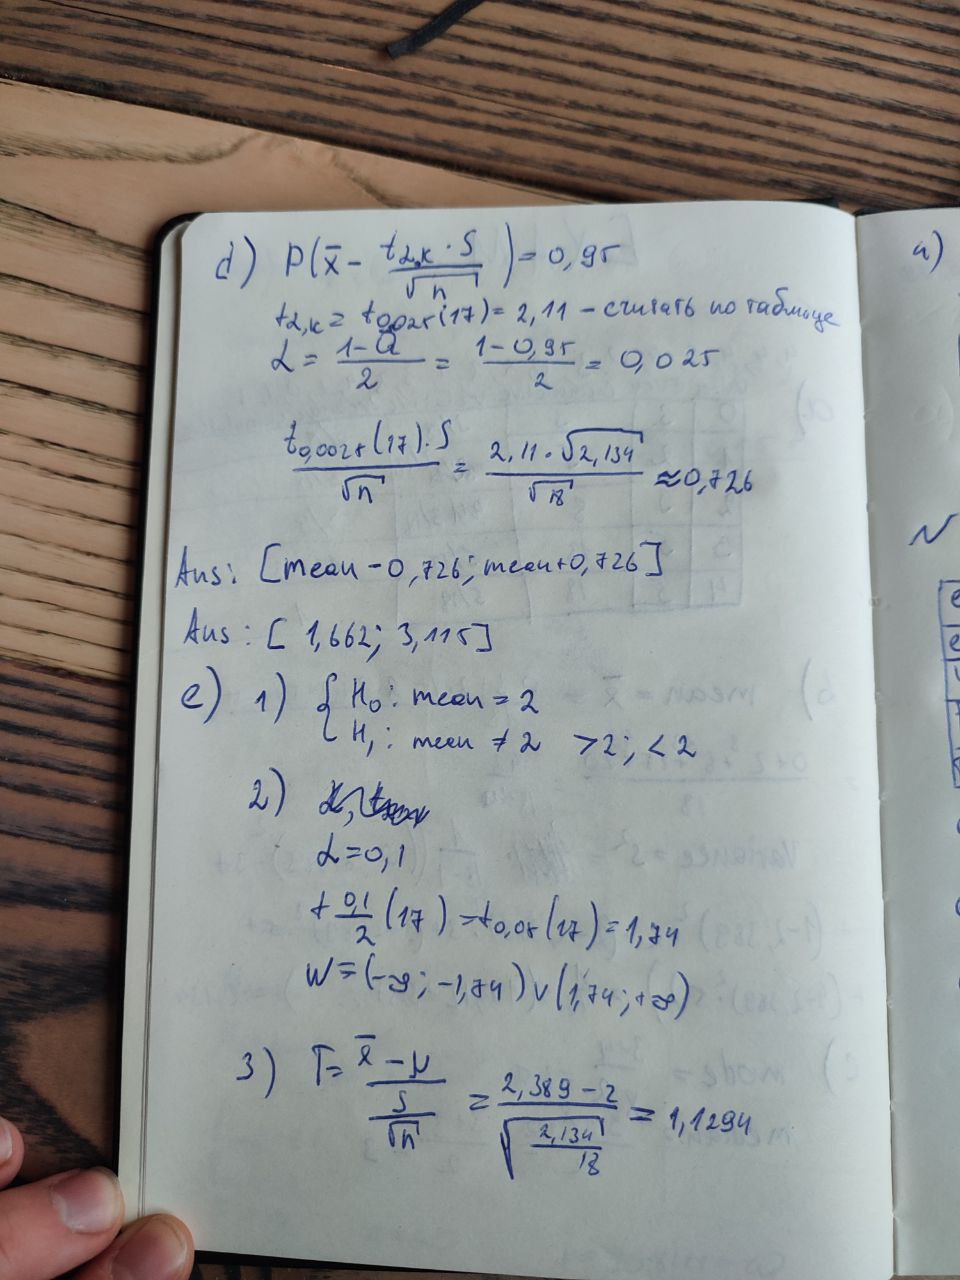 d) P(x̄ - t₂,ₖ · S / √n) = 0,95
t₂,ₖ = t₀,₀₂₅(17) = 2,11 - считать по таблице
α = (1-Q)/2 = (1-0,95)/2 = 0,025
t₀,₀₀₂₅(17) · S / √n = 2,11 · √2,134 / √18 ≈ 0,726
Ans: [mean - 0,726; mean + 0,726]
Ans: [1,662; 3,115]
e) 1) { H₀: mean = 2
H₁: mean ≠ 2 >2; <2
2)
α = 0,1
t 0,1/2 (17) = t₀,₀₅(17) = 1,74
W = (-∞; -1,74) ∪ (1,74; +∞)
3) T = (x̄ - μ) / (S/√n) = (2,389 - 2) / √(2,134/18) = 1,1294
a)